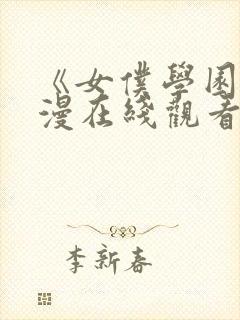 《女僕學園
漫在綫觀看
李新春